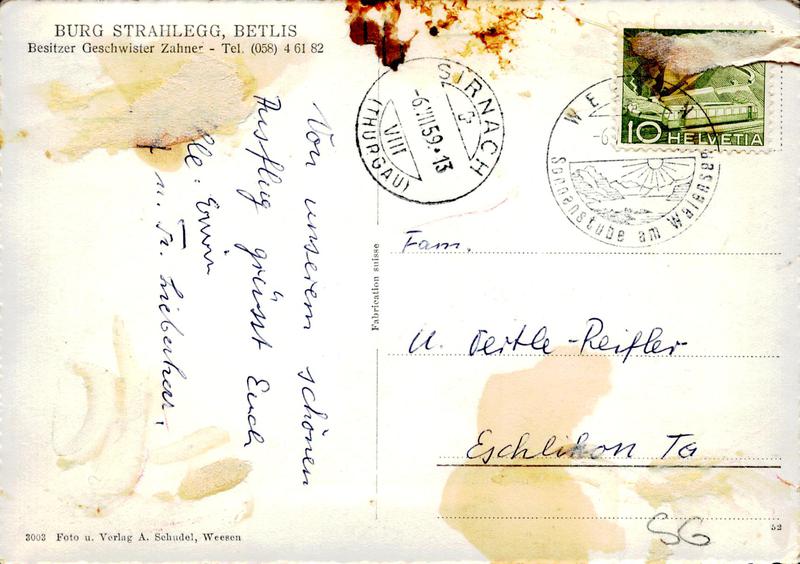 BURG STRAHLEGG, BETLIS
Besitzer Geschwister Zahner - Tel. (058) 4 61 82
Von unserem schönen
Ausflug grüsst Euch
Erwin
u. Fr. Lieberherr.
Fabrication suisse
SIRNACH
-6.VIII.59.-13
VIII
(THURGAU)
WE EN
-6
Sonnenstube am Walensee
10 HELVETIA
Fam.
U. Oertle-Reifler
Eschlikon Tg
SG
52
3003 Foto u. Verlag A. Schudel, Weesen